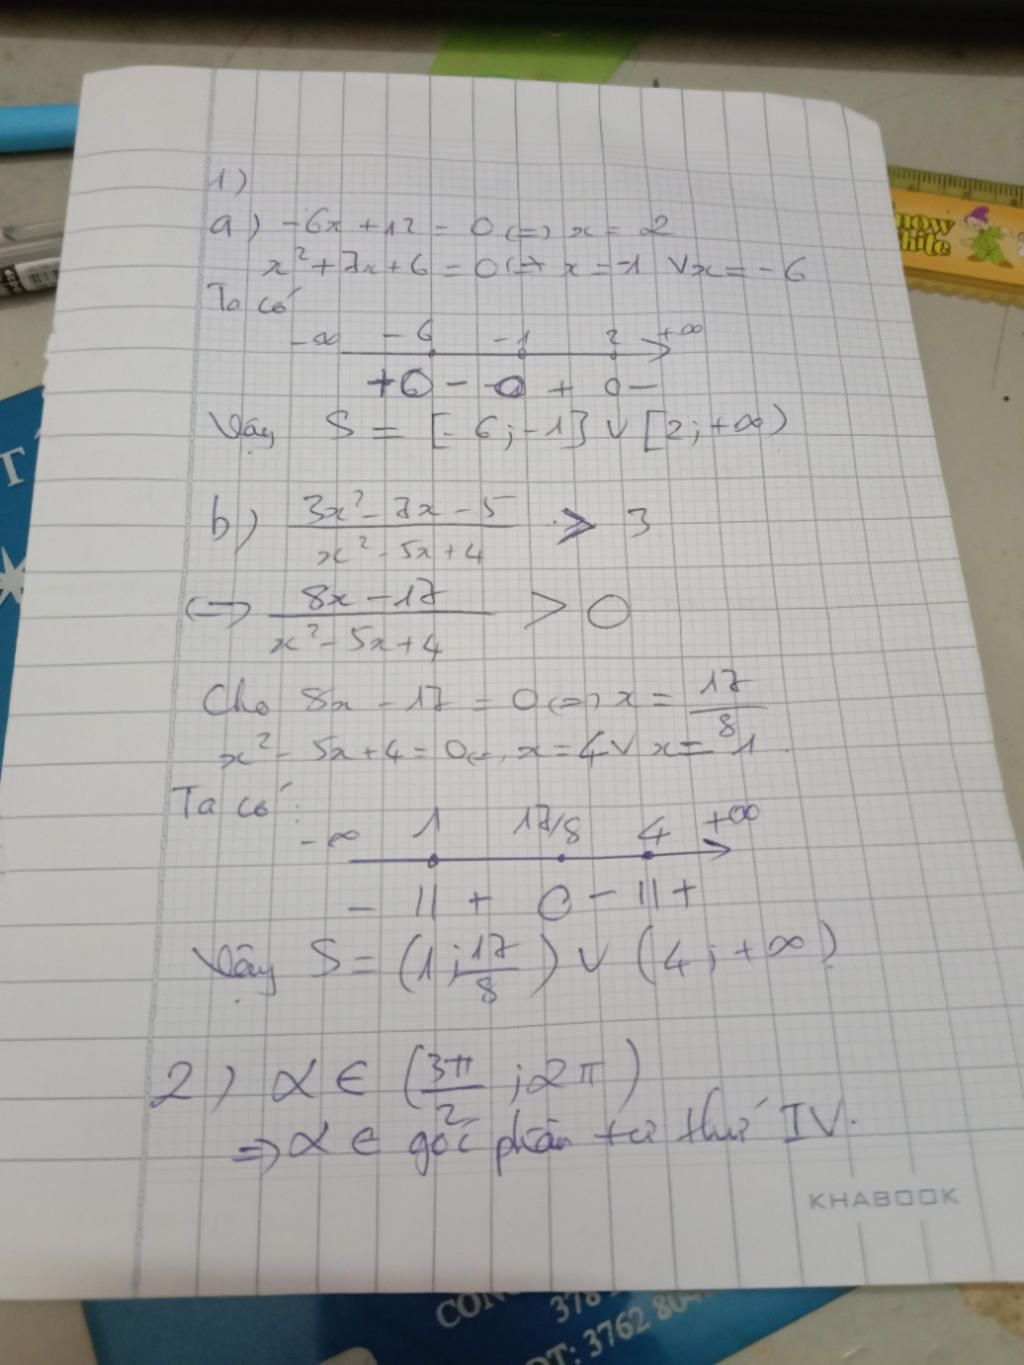 1)
a) -6x + 12 = 0 <=> x = 2
x² + 7x + 6 = 0 <=> x = -1 ∨ x = -6
Ta có
-∞ -6 -1 2 +∞
+ 0 - 0 + 0 -
Vậy S = [-6; -1] ∨ [2; +∞)
b) (3x² - 7x - 5)/(x² - 5x + 4) > 3
<=> (8x - 17)/(x² - 5x + 4) > 0
Cho 8x - 17 = 0 <=> x = 17/8
x² - 5x + 4 = 0 <=> x = 4 ∨ x = 1
Ta có:
-∞ 1 17/8 4 +∞
- || + 0 - || +
Vậy S = (1; 17/8) ∨ (4; +∞)
2) α ∈ (3π/2; 2π)
=> α ∈ góc phần tư thứ IV.
KHABOOK
now
hite
T
CON
378
ĐT: 3762 80